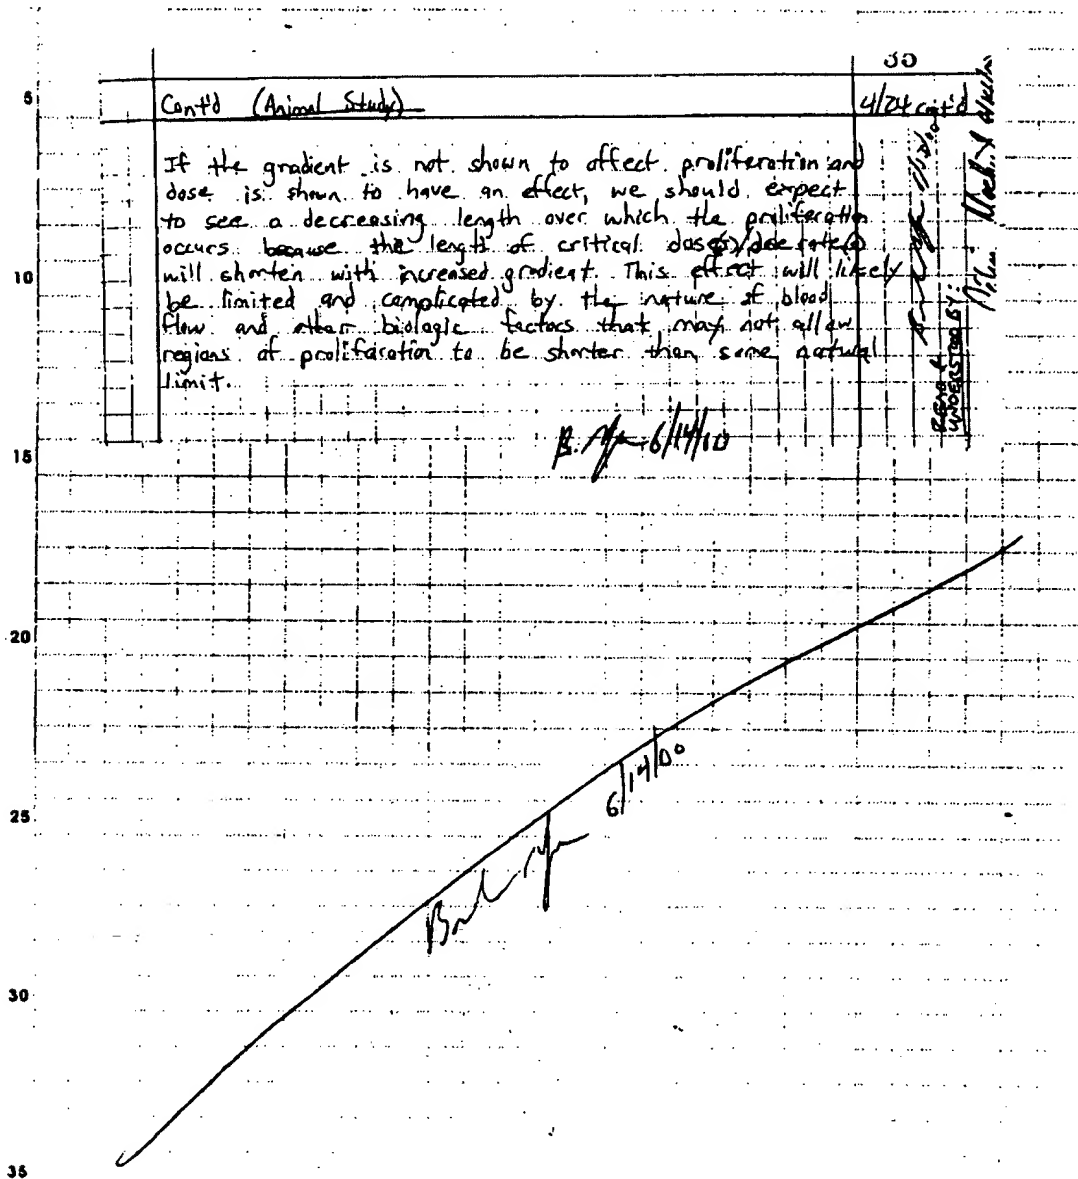 35
Cont'd (Animal Study)
4/24 cont'd
If the gradient is not shown to affect proliferation and
dose is shown to have an effect, we should expect
to see a decreasing length over which the proliferation
occurs because the length of critical dose(s)/dose rate(s)
will shorten with increased gradient. This effect will likely
be limited and complicated by the nature of blood
flow and other biologic factors that may not allow
regions of proliferation to be shorter than some natural
limit.
READ &
UNDERSTOOD BY:
B. 6/14/00
6/14/00
5
10
15
20
25
30
35